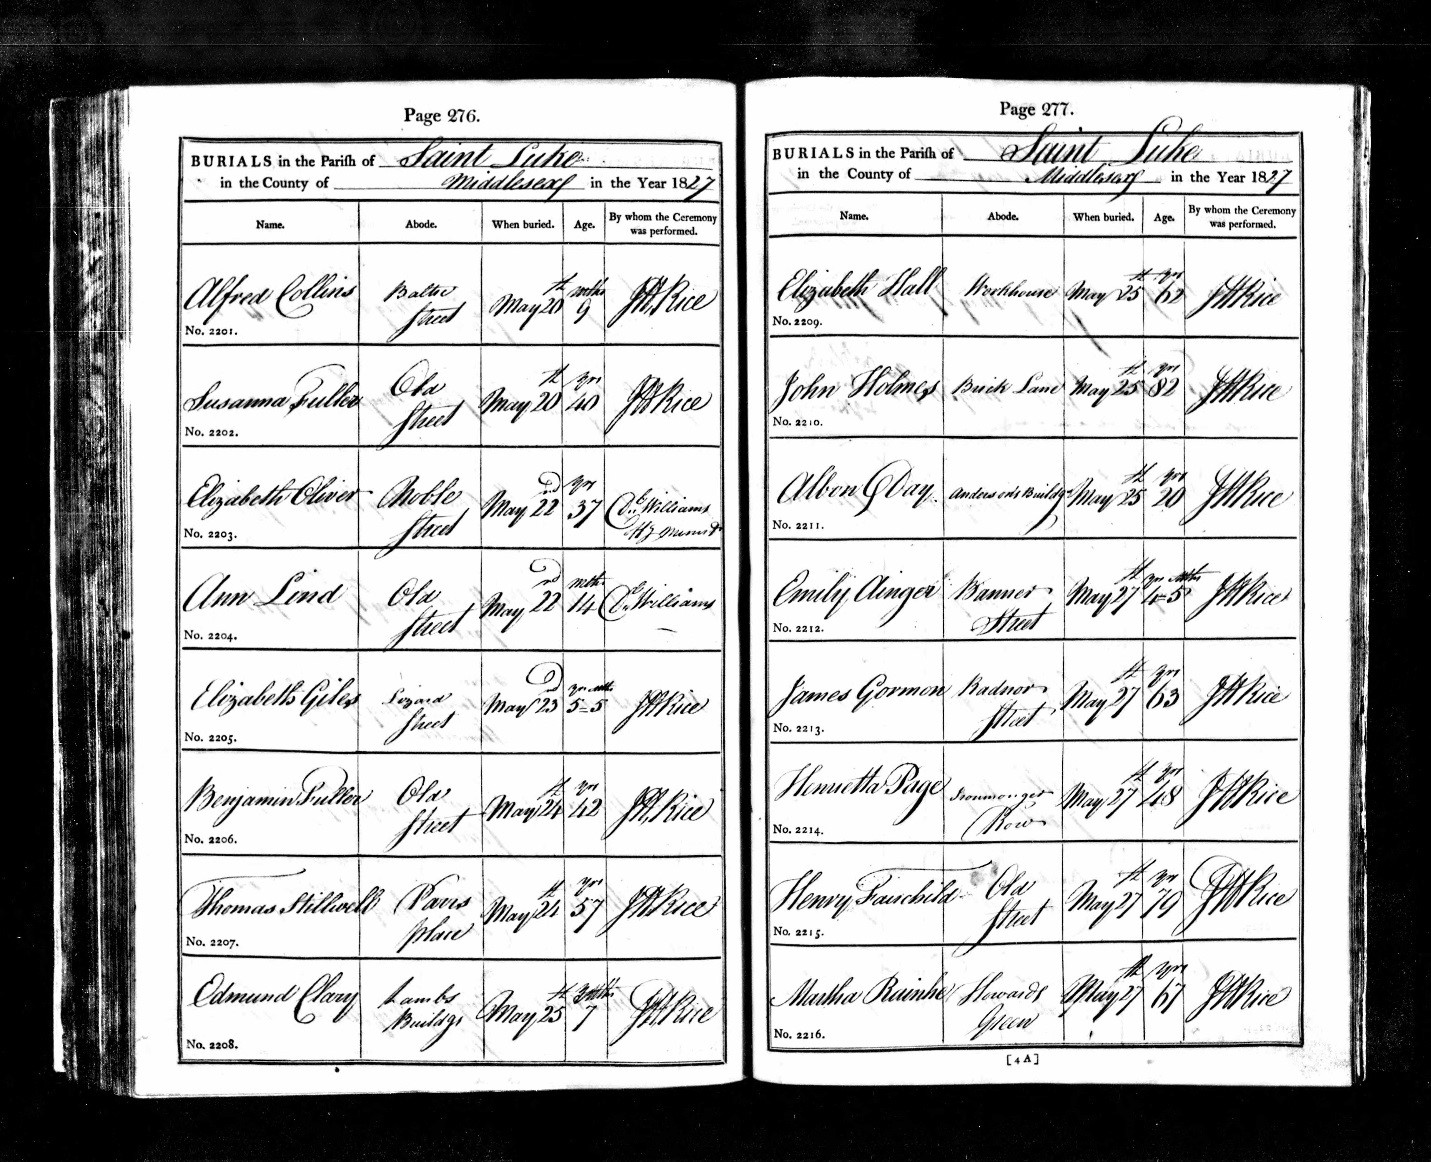 Page 276.
BURIALS in the Parish of Saint Luke
in the County of Middlesex in the Year 1827
Name. Abode. When buried. Age. By whom the Ceremony was performed.
Alfred Collins
Street
May 20th
9 mths
JH Rice
No. 2201.
Susanna Fuller
Old
Street
May 20th
40 yrs
JH Rice
No. 2202.
Elizabeth Oliver
Noble
Street
May 22nd
37 yrs
Williams
No. 2203.
Ann Lind
Old
Street
May 22nd
14 mths
Williams
No. 2204.
Elizabeth Giles
Lizard
Street
May 23rd
5=5 yrs mths
JH Rice
No. 2205.
Benjamin Fuller
Old
Street
May 24th
42 yrs
JH Rice
No. 2206.
Thomas Stillwell
place
May 24th
57 yrs
JH Rice
No. 2207.
Edmund Clary
Lambs
Buildgs
May 25th
7
JH Rice
No. 2208.
Page 277.
BURIALS in the Parish of Saint Luke
in the County of Middlesex in the Year 1827
Name. Abode. When buried. Age. By whom the Ceremony was performed.
Elizabeth Hall
Workhouse
May 25th
62 yrs
JH Rice
No. 2209.
John Holmes
Brick Lane
May 25th
82 yrs
JH Rice
No. 2210.
Albon G Day
Andersons Buildgs
May 25th
20 yrs
JH Rice
No. 2211.
Emily Ainger
Banner
Street
May 27th
4=5 yrs mths
JH Rice
No. 2212.
James Gormon
Radnor
Street
May 27th
63 yrs
JH Rice
No. 2213.
Henrietta Page
Ironmonger
Row
May 27th
48 yrs
JH Rice
No. 2214.
Henry Fairchild
Old
Street
May 27th
79 yrs
JH Rice
No. 2215.
Martha
Howards
Green
May 27th
67 yrs
JH Rice
No. 2216.
[4A]